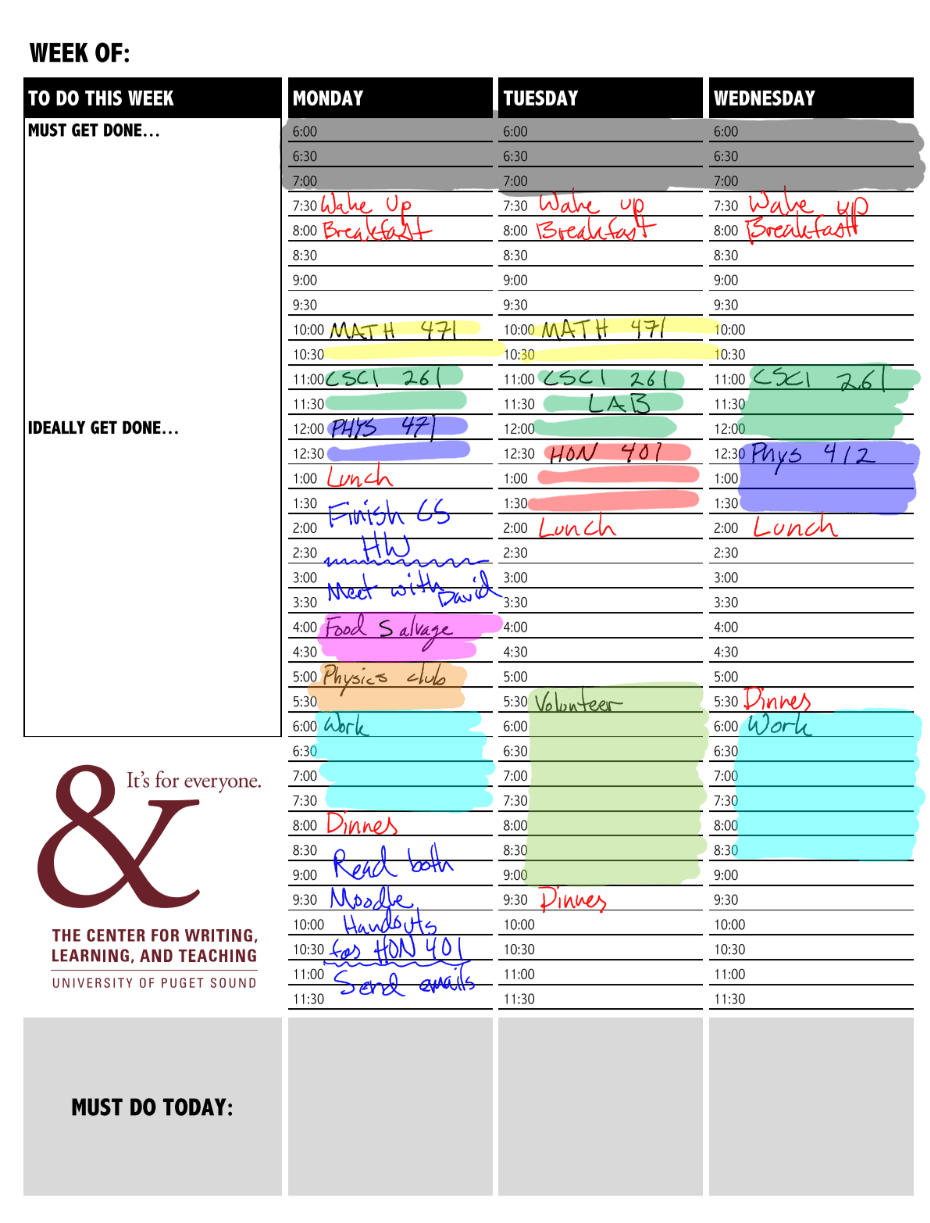 WEEK OF:
TO DO THIS WEEK
MUST GET DONE...
IDEALLY GET DONE...
It's for everyone.
&
THE CENTER FOR WRITING,
LEARNING, AND TEACHING
UNIVERSITY OF PUGET SOUND
MUST DO TODAY:
MONDAY
6:00
6:30
7:00
7:30 Wake Up
8:00 Breakfast
8:30
9:00
9:30
10:00 MATH 471
10:30
11:00 CSCI 261
11:30
12:00 PHYS 471
12:30
1:00 Lunch
1:30 Finish CS
2:00
2:30 HW
3:00 Meet with
3:30 David
4:00 Food Salvage
4:30
5:00 Physics club
5:30
6:00 Work
6:30
7:00
7:30
8:00 Dinner
8:30 Read both
9:00
9:30 Moodle
10:00 Handouts
10:30 for HON 401
11:00 Send emails
11:30
TUESDAY
6:00
6:30
7:00
7:30 Wake up
8:00 Breakfast
8:30
9:00
9:30
10:00 MATH 471
10:30
11:00 CSCI 261
11:30 LAB
12:00
12:30 HON 401
1:00
1:30
2:00 Lunch
2:30
3:00
3:30
4:00
4:30
5:00
5:30 Volunteer
6:00
6:30
7:00
7:30
8:00
8:30
9:00
9:30 Dinner
10:00
10:30
11:00
11:30
WEDNESDAY
6:00
6:30
7:00
7:30 Wake up
8:00 Breakfast
8:30
9:00
9:30
10:00
10:30
11:00 CSCI 261
11:30
12:00
12:30 Phys 412
1:00
1:30
2:00 Lunch
2:30
3:00
3:30
4:00
4:30
5:00
5:30 Dinner
6:00 Work
6:30
7:00
7:30
8:00
8:30
9:00
9:30
10:00
10:30
11:00
11:30